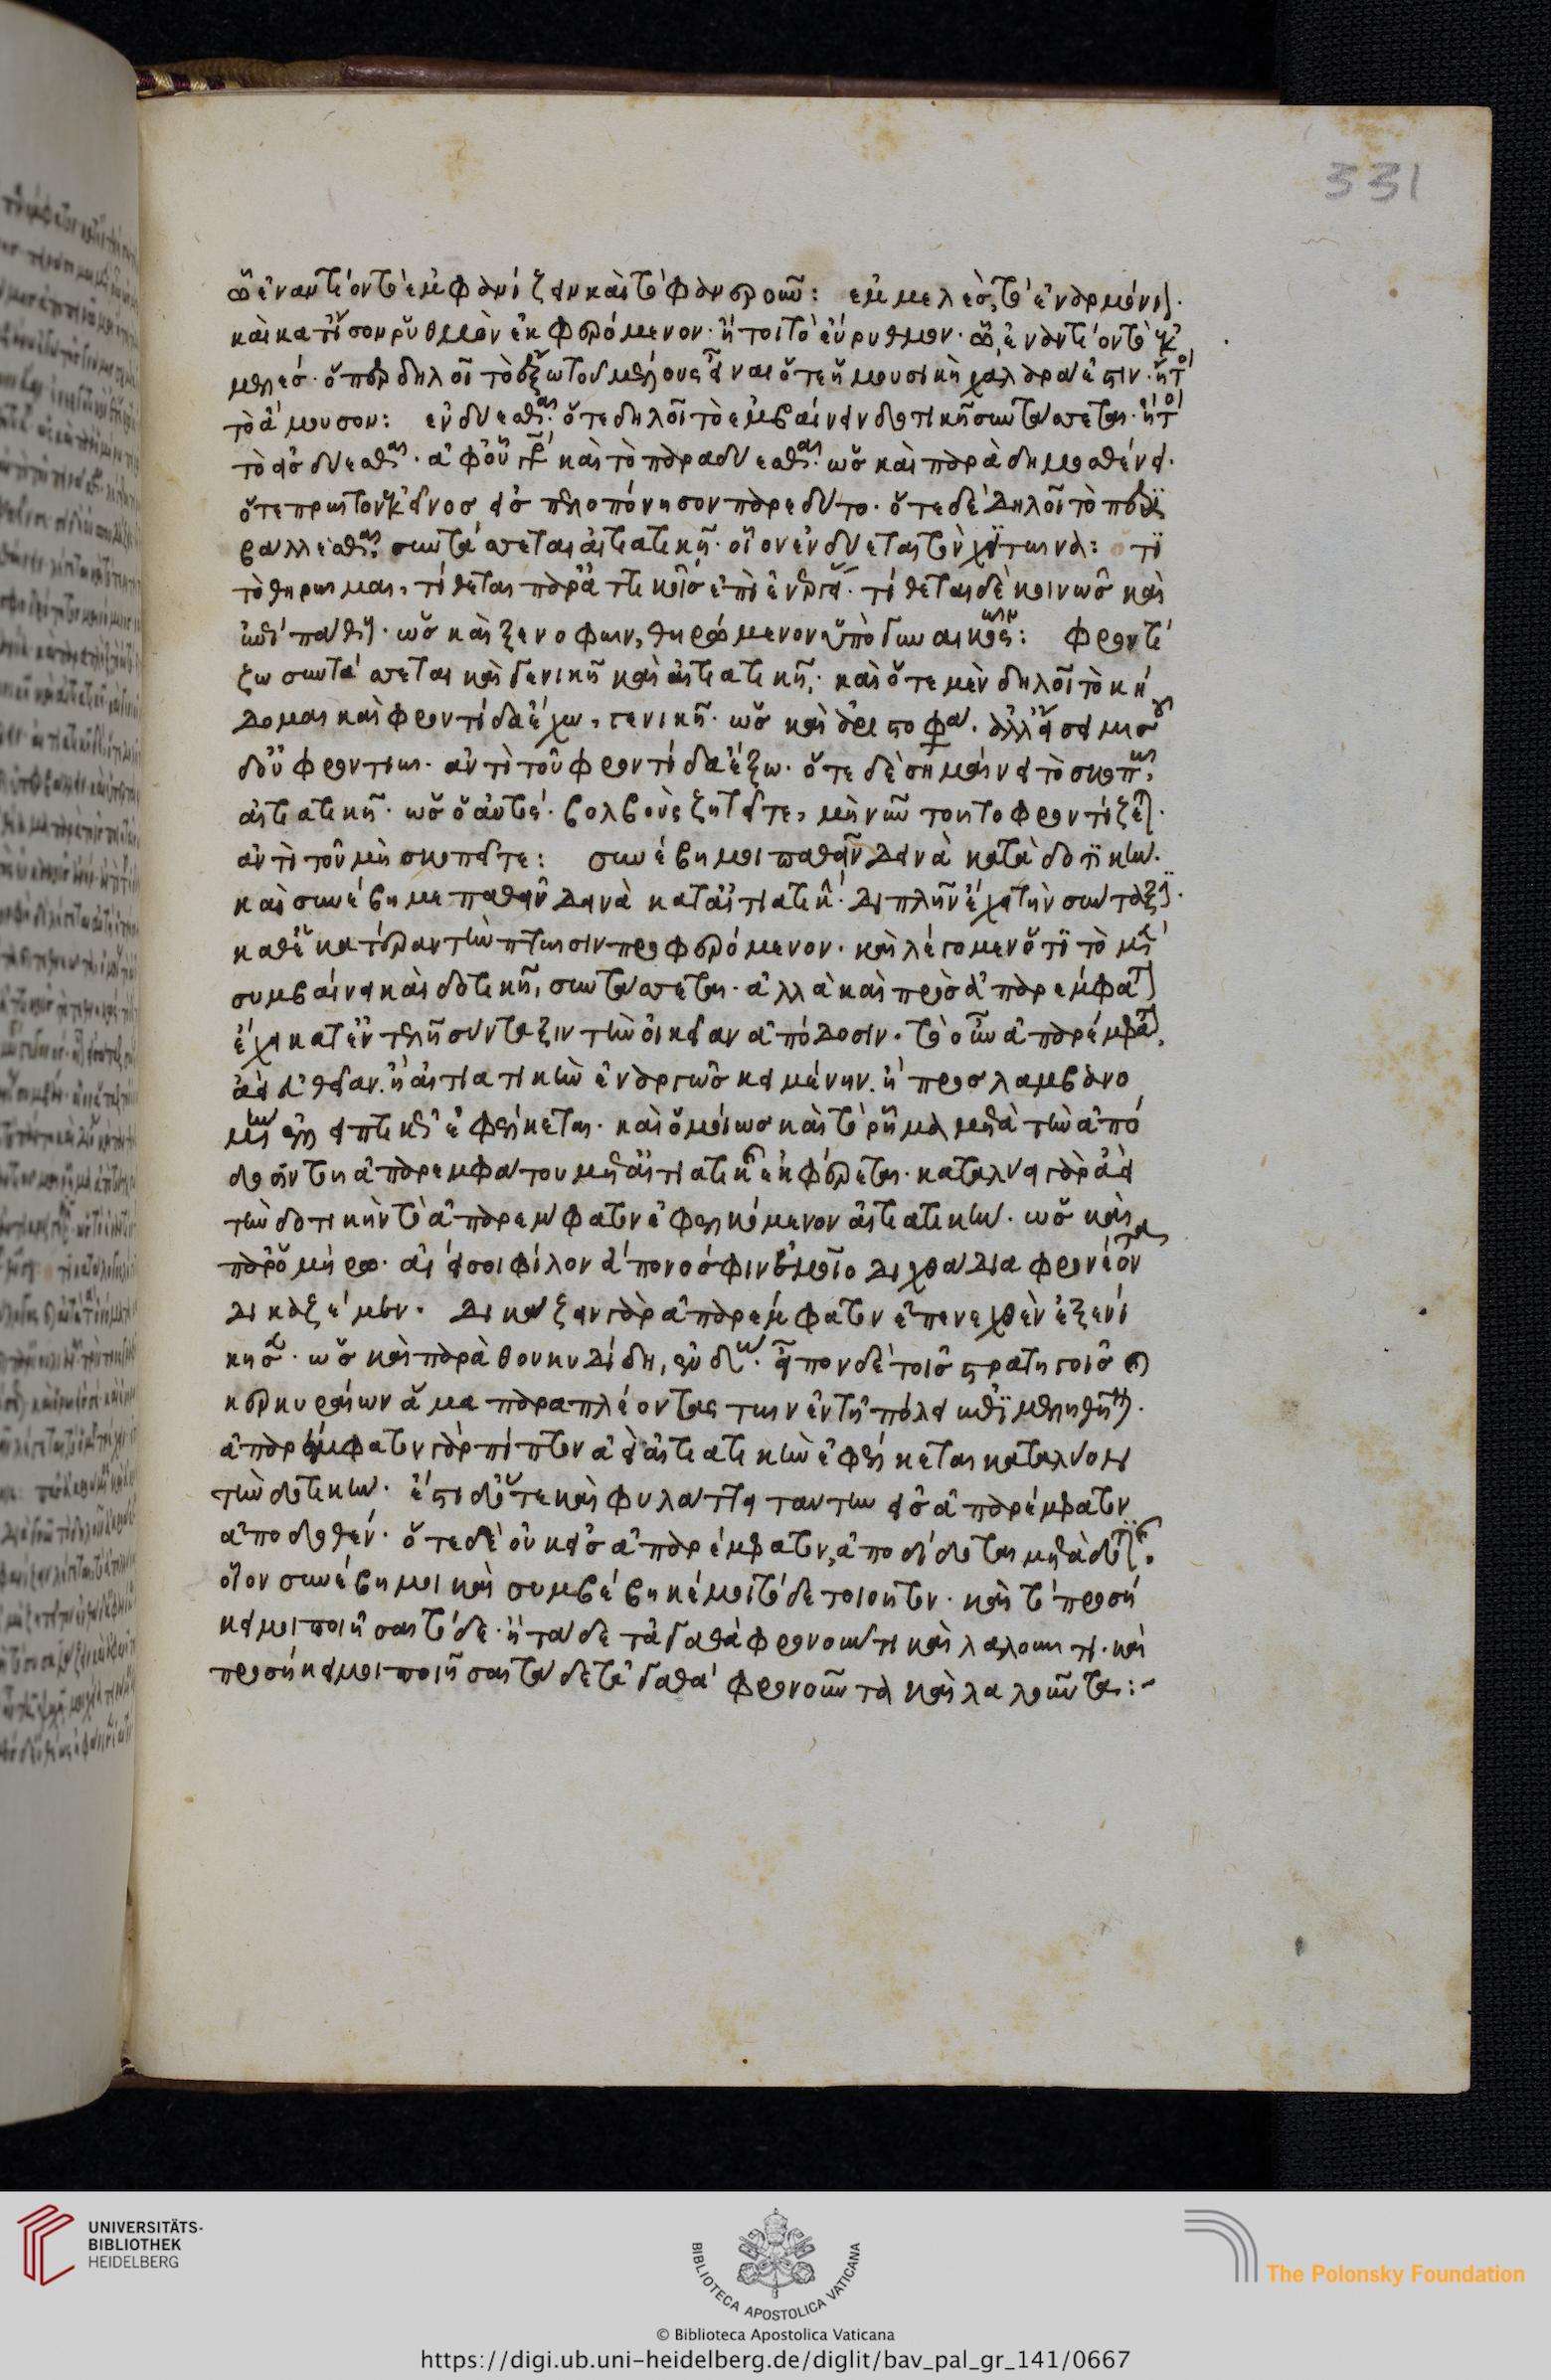 331
ᾧ ἐναντίον τὸ ἐμφανίζειν καὶ τὸ φανεροῦν: ἐμμελὲς, τὸ ἐναρμόνι
καὶ κατ' ἴσον ῥυθμὸν ἐκφερόμενον· ἤτοι τὸ εὔρυθμον· ᾧ ἐναντίον τὸ ἐκ
μελές· ὅπερ δηλοῖ τὸ ἔξω τοῦ μέλους εἶναι ὅτε ἡ μουσικὴ ἐστιν· ἤτοι
τὸ ἄμουσον: ἐνδύεσθαι· ὅτε δηλοῖ τὸ ἐμβαίνειν δοτικῇ συντάσσεται· ἤτοι
τὸ εἰσδύεσθαι· ἀφ' οὗ καὶ τὸ παραδύεσθαι· ὡς καὶ παρὰ δημοσθένει·
ὅτε πρῶτον κἀκεῖνος εἰς πελοπόννησον παρεδύετο· ὅτε δὲ δηλοῖ τὸ περι
βάλλεσθαι, συντάσσεται αἰτιατικῇ· οἷον ἐνδύεται τὸν χιτῶνα: ὅτι
τὸ θηρῶμαι, τίθεται παρ' ἀττικοῖς ἐπὶ ἐνεργείας· τίθεται δὲ κοινῶς καὶ
ἐπὶ πάθους· ὡς καὶ ξενοφῶν, θηρώμενον ὑπὸ γυναικὸς: φροντί
ζω συντάσσεται καὶ γενικῇ καὶ αἰτιατικῇ· καὶ ὅτε μὲν δηλοῖ τὸ κή
δομαι καὶ φροντίδα ἔχω, γενικῇ· ὡς καὶ ἀριστοφάνης·
φροντιῶ· ἀντὶ τοῦ φροντίδα ἕξω· ὅτε δὲ σημαίνει τὸ σκοπῶ,
αἰτιατικῇ· ὡς ὁ αὐτός· βολβοὺς ζητεῖτε, μὴ νῦν τοῦτο φροντίζετε·
ἀντὶ τοῦ μὴ σκοπεῖτε: συνέβη μοι παθεῖν δεινὰ κατὰ δοτικήν·
καὶ συνέβη με παθεῖν δεινὰ κατ' αἰτιατικήν· διπλῆν ἔχει τὴν σύνταξιν·
καθ' ἑκατέραν τὴν πτῶσιν προφερόμενον· καὶ λέγομεν ὅτι τὸ μὲν
συμβαίνει καὶ δοτικῇ, συντάσσεται· ἀλλὰ καὶ πρὸς ἀπαρέμφατον
ἔχει κατ' ἐντελῆ σύνταξιν τὴν οἰκείαν ἀπόδοσιν· τὸ οὖν ἀπαρέμφατον,
ἀεὶ εὐθεῖαν ἢ αἰτιατικὴν ἐναργῶς κειμένην ἢ προσλαμβανο
μένην ἐλλειπτικῶς ἐφέλκεται· καὶ ὁμοίως καὶ τὸ ῥῆμα μετὰ τὴν ἀπό
δοσιν τοῦ ἀπαρεμφάτου μετ' αἰτιατικῆς ἐκφέρεται· καταλύει γὰρ ἀεὶ
τὴν δοτικὴν τὸ ἀπαρέμφατον ἐφελκόμενον αἰτιατικήν· ὡς καὶ
παρ' ὁμήρῳ· διχθαδία φρονέοντα
δικαζέμεν· δικάζειν γὰρ ἀπαρέμφατον ἐπενεχθὲν ἐξενί
κησε· ὡς καὶ παρὰ θουκυδίδῃ· εἶπον δὲ τοῖς στρατηγοῖς τῶν
κερκυραίων ἅμα παραπλέοντας τῶν ἐν τῇ πόλει ἐπιμεληθῆναι·
ἀπαρέμφατον γὰρ πίπτον ἀεὶ αἰτιατικὴν ἐφέλκεται καταλύον
τὴν δοτικήν· ἔστι δ' ὅτε καὶ φυλάττει ταύτην εἰς ἀπαρέμφατον
ἀποδοθέν· ὅτε δὲ οὐκ εἰς ἀπαρέμφατον, ἀποδίδοται μετὰ δοτικῆς·
οἷον συνέβη μοι καὶ συμβέβηκέ μοι τόδε τοιοῦτον· καὶ τὸ προσή
κει μοι ποιῆσαι τόδε· ἢ τάδε τἀγαθὰ φρονοῦντι καὶ λαλοῦντι· καὶ
προσήκει μοι ποιῆσαι τάδε τἀγαθὰ φρονοῦντα καὶ λαλοῦντα:
UNIVERSITÄTS-
BIBLIOTHEK
HEIDELBERG
BIBLIOTECA APOSTOLICA VATICANA
The Polonsky Foundation
© Biblioteca Apostolica Vaticana
https://digi.ub.uni-heidelberg.de/diglit/bav_pal_gr_141/0667